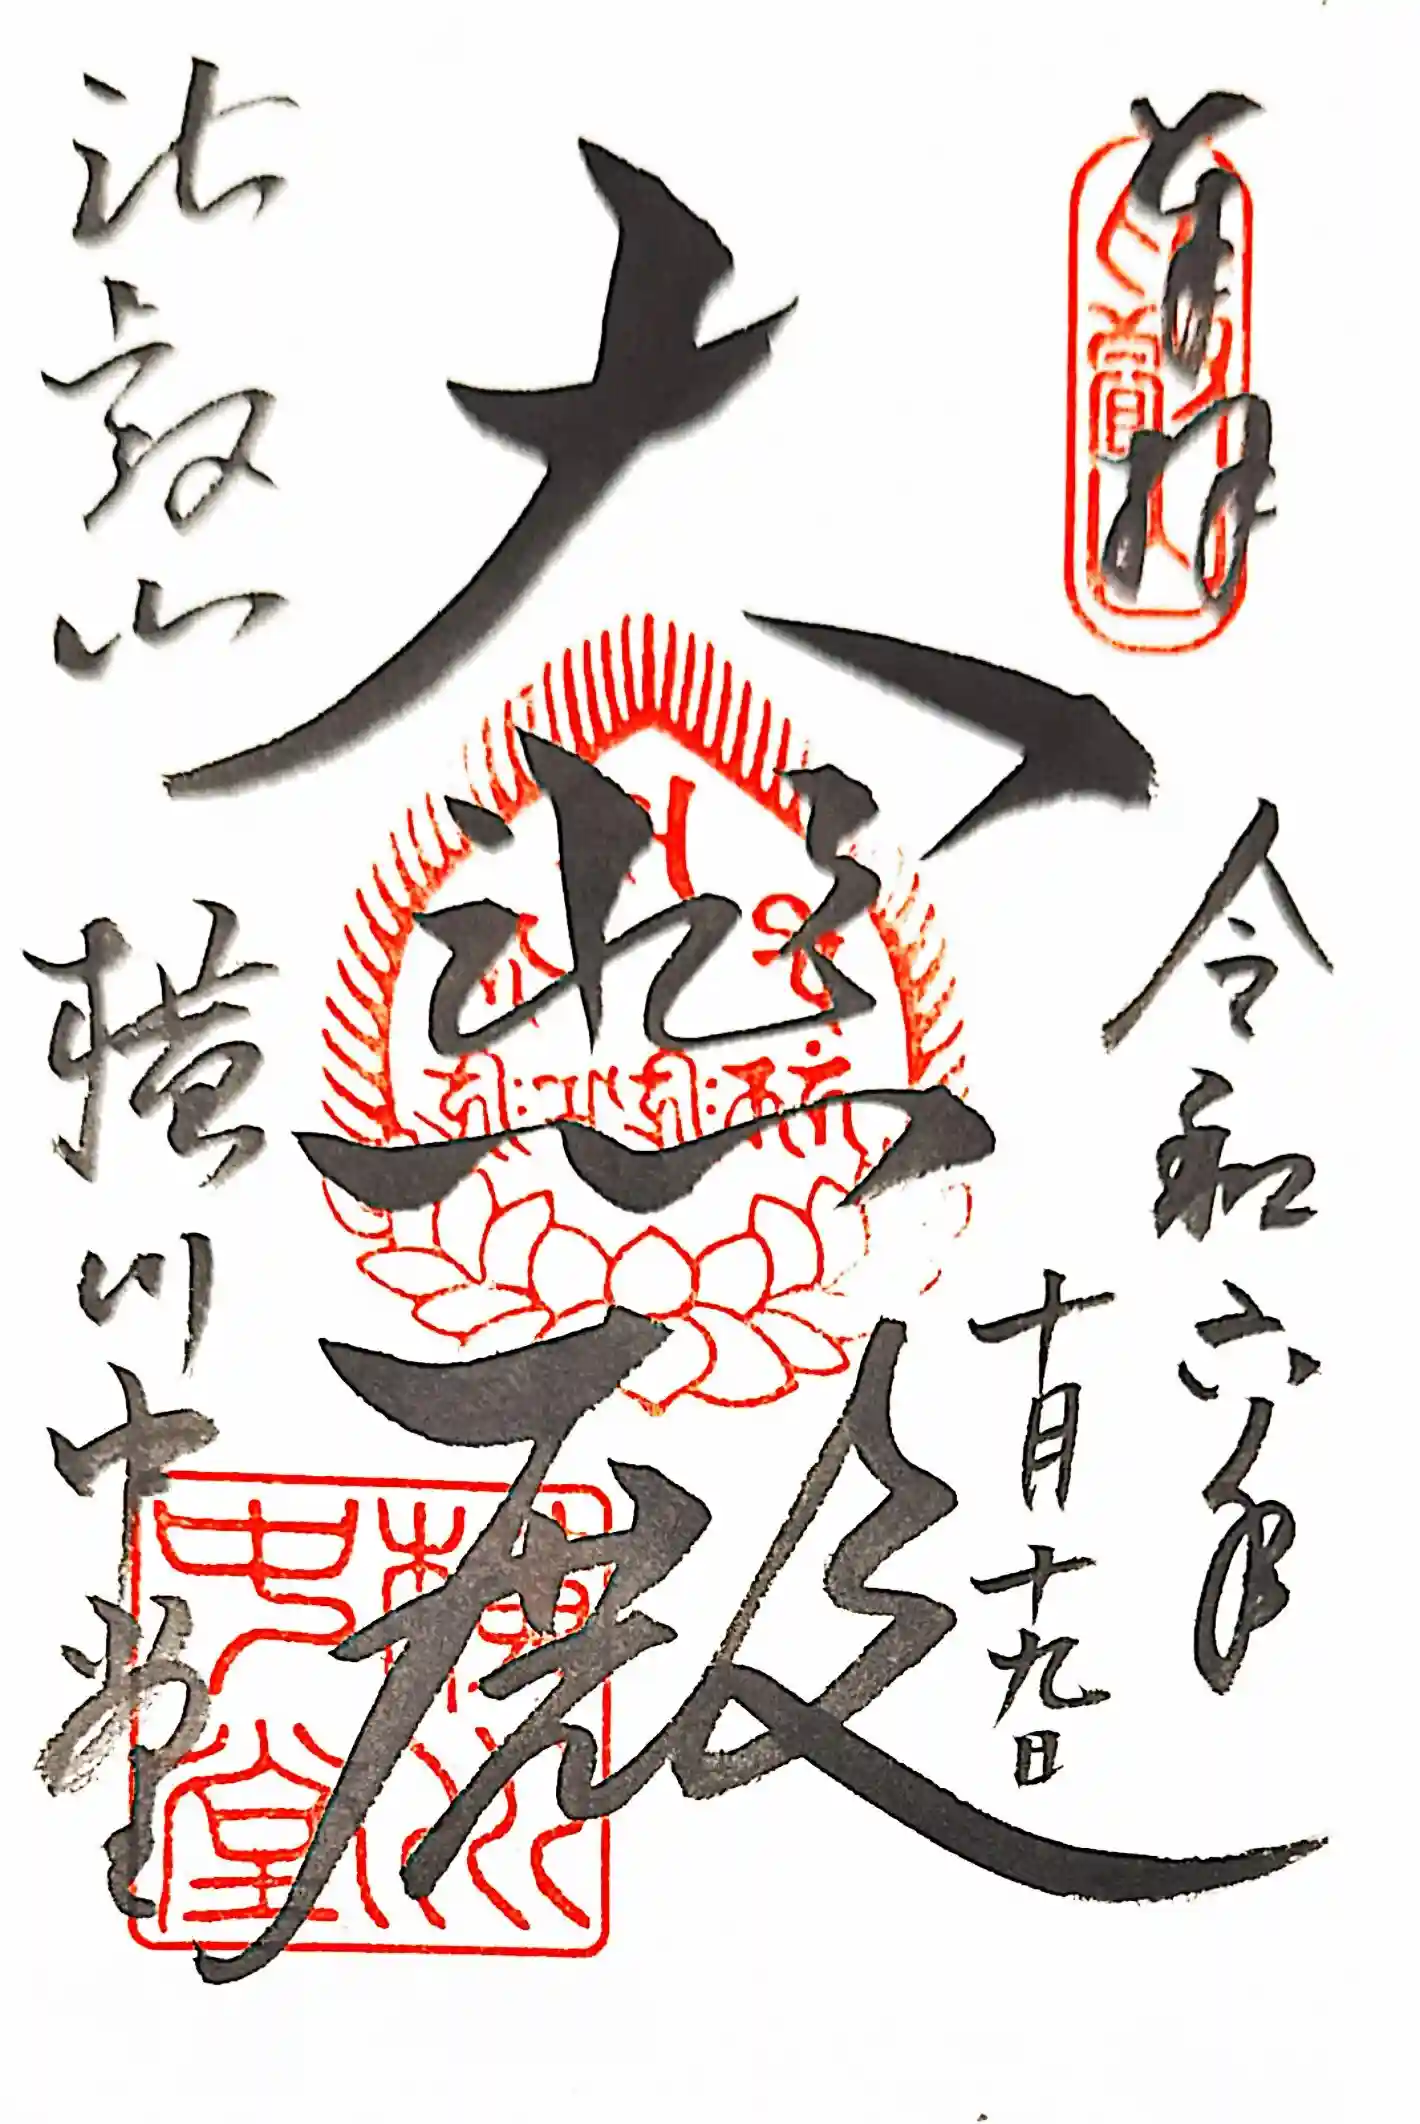 奉拝
令和六年
十月十九日
大悲殿
比叡山 横川中堂
横川中堂